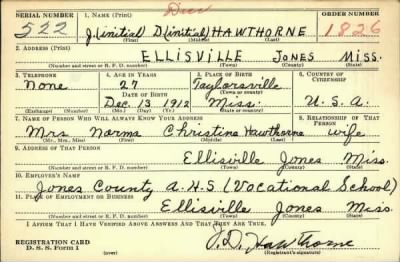 SERIAL NUMBER
1. NAME (Print)
ORDER NUMBER
522
J.(initial) D.(initial) HAWTHORNE
1826
(First) (Middle) (Last)
2. ADDRESS (Print)
ELLISVILLE JONES MISS.
(Number and street or R. F. D. number) (Town) (County) (State)
3. TELEPHONE
4. AGE IN YEARS
5. PLACE OF BIRTH
6. COUNTRY OF CITIZENSHIP
None
27
Taylorsville
DATE OF BIRTH
(Town or county)
Dec. 13 1912
Miss.
U.S.A.
(Exchange) (Number)
(Mo.) (Day) (Yr.)
(State or country)
7. NAME OF PERSON WHO WILL ALWAYS KNOW YOUR ADDRESS
8. RELATIONSHIP OF THAT PERSON
Mrs Norma Christine Hawthorne wife
(Mr., Mrs., Miss) (First) (Middle) (Last)
9. ADDRESS OF THAT PERSON
Ellisville Jones Miss.
(Number and street or R. F. D. number) (Town) (County) (State)
10. EMPLOYER'S NAME
Jones County A.H.S. (Vocational School)
11. PLACE OF EMPLOYMENT OR BUSINESS
Ellisville Jones Miss.
(Number and street or R. F. D. number) (Town) (County) (State)
I AFFIRM THAT I HAVE VERIFIED ABOVE ANSWERS AND THAT THEY ARE TRUE.
REGISTRATION CARD
D. S. S. Form 1
J. D. Hawthorne
(Registrant's signature)